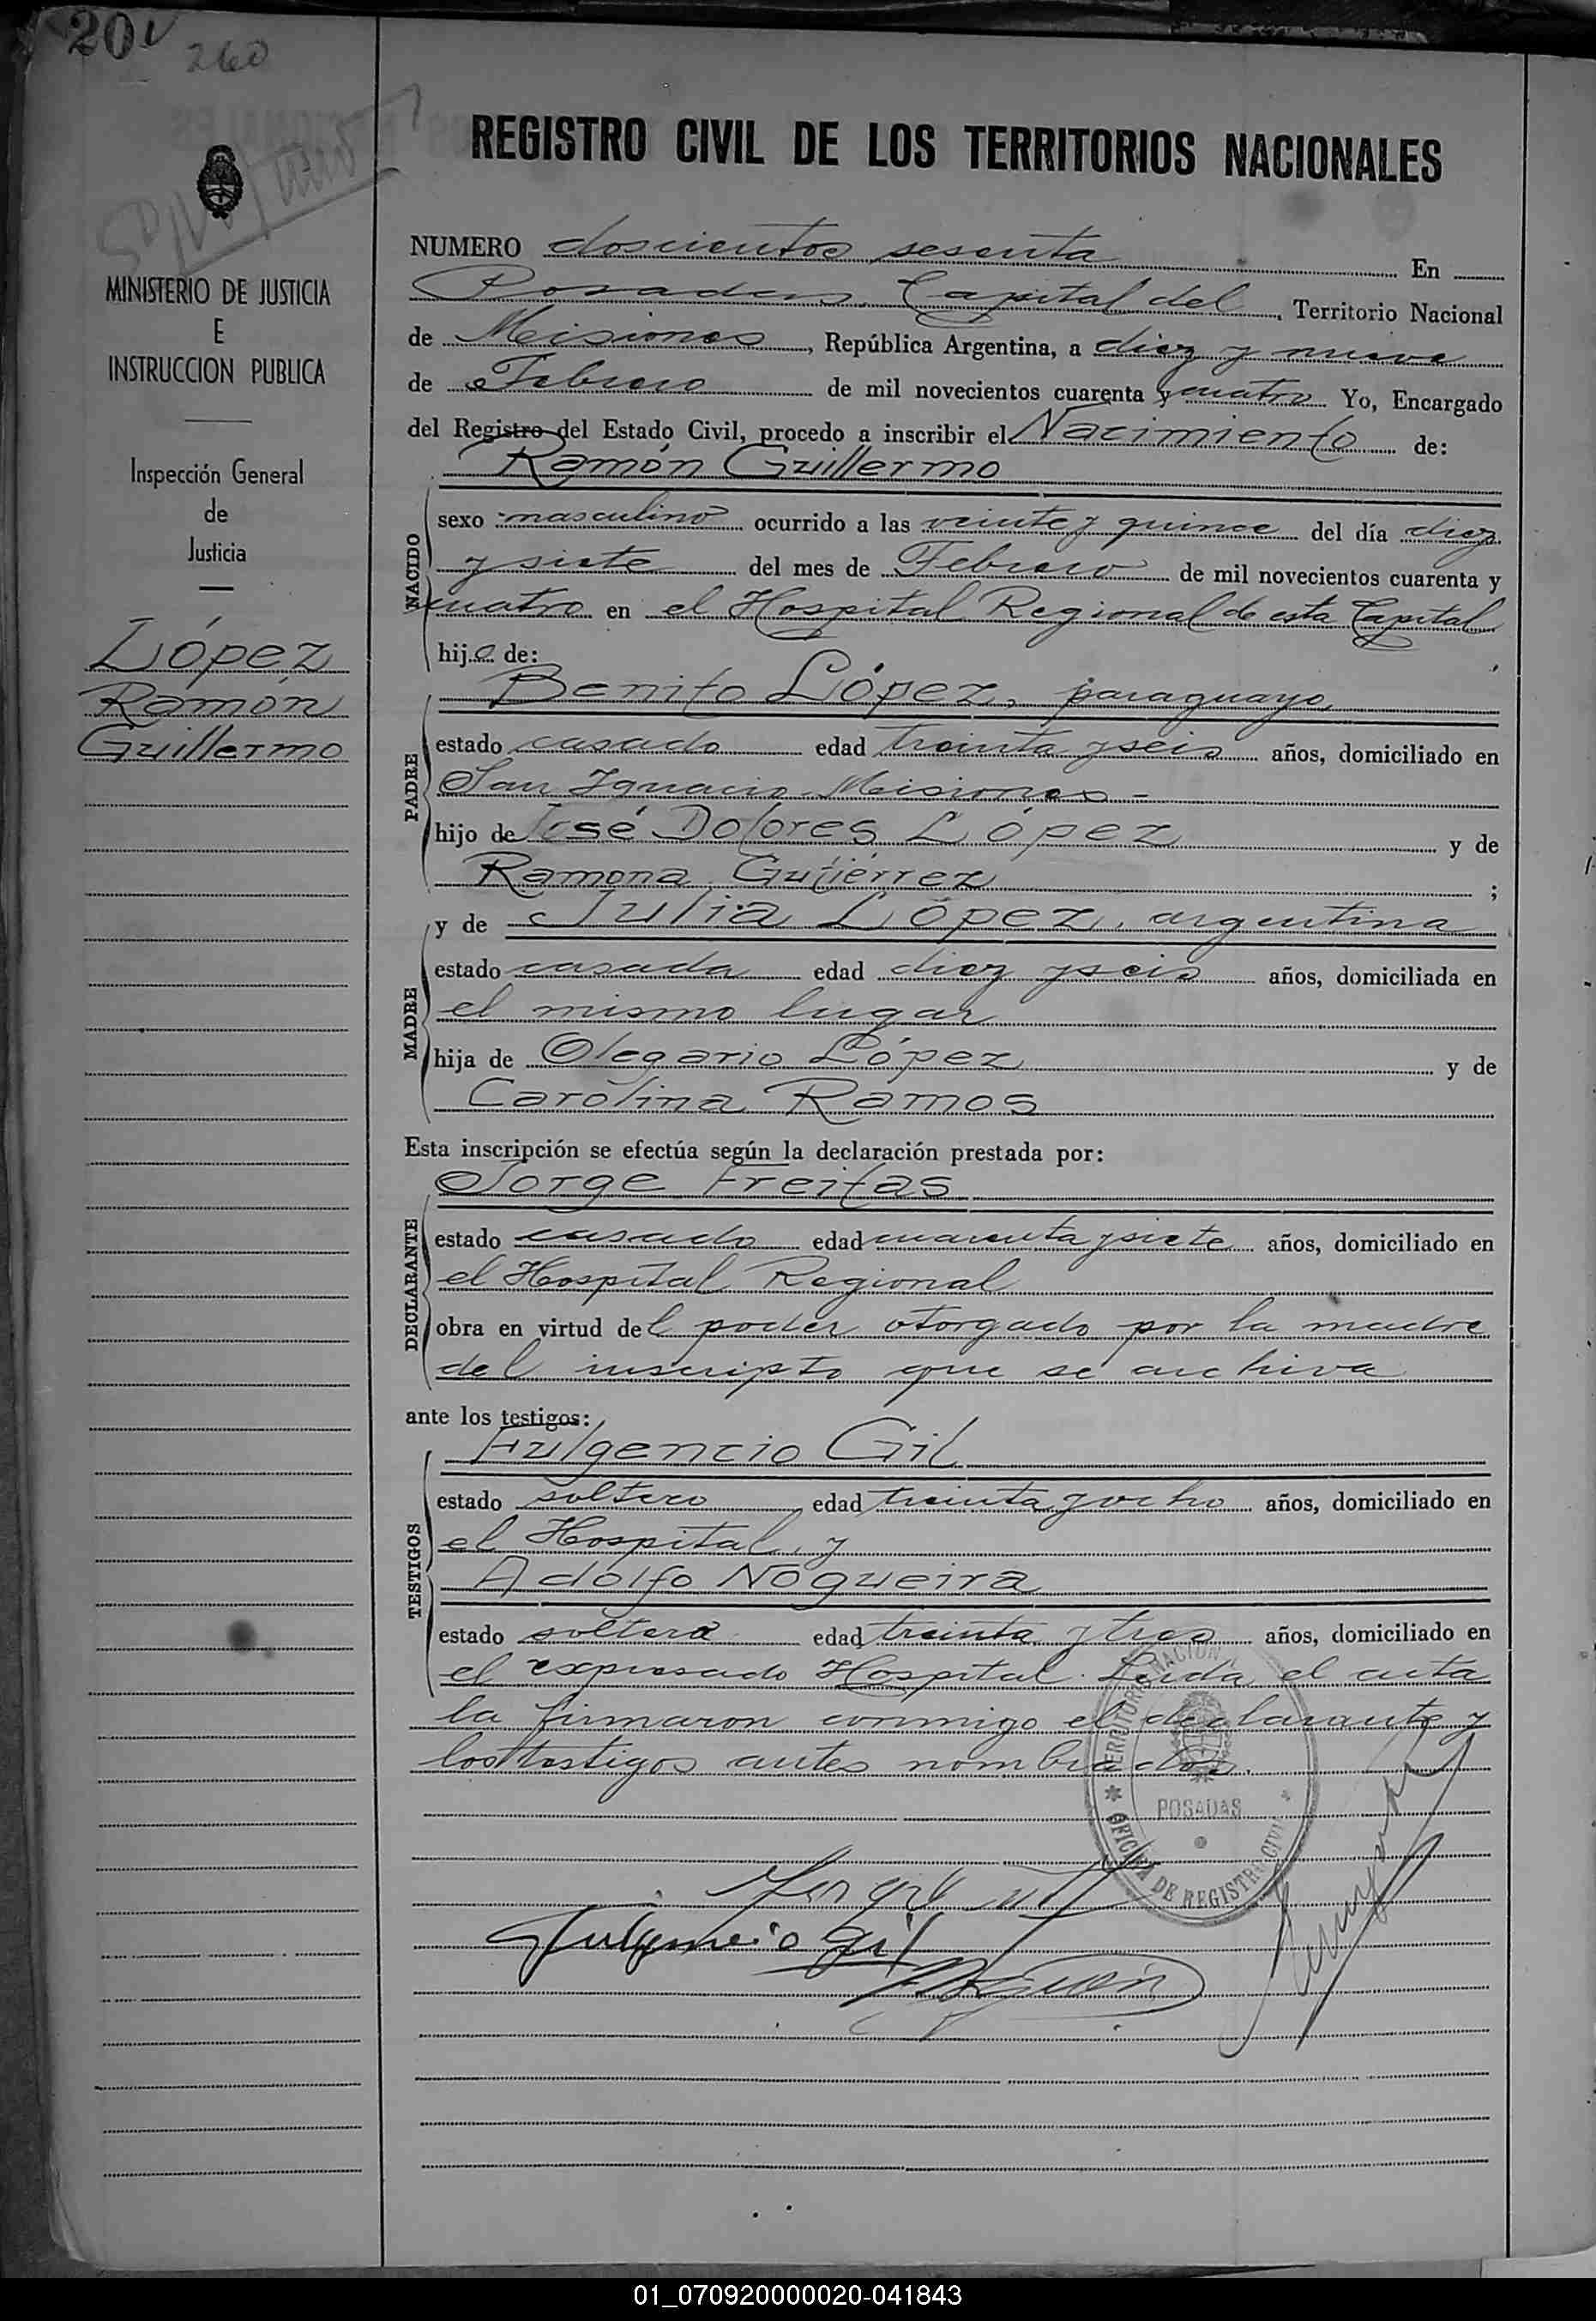 201
260
REGISTRO CIVIL DE LOS TERRITORIOS NACIONALES
MINISTERIO DE JUSTICIA
E
INSTRUCCION PUBLICA
Inspección General
de
Justicia
López
Ramón
Guillermo
NUMERO doscientos sesenta En
Posadas, Capital del, Territorio Nacional
de Misiones, República Argentina, a diez y nueve
de Febrero de mil novecientos cuarenta y cuatro Yo, Encargado
del Registro del Estado Civil, procedo a inscribir el Nacimiento de:
Ramón Guillermo
NACIDO
sexo masculino ocurrido a las veinte y quince del día diez
y siete del mes de Febrero de mil novecientos cuarenta y
cuatro en el Hospital Regional de esta Capital
hijo de:
PADRE
Benito López, paraguayo,
estado casado edad treinta y seis años, domiciliado en
San Ignacio Misiones -
hijo de José Dolores López y de
Ramona Gutiérrez ;
MADRE
y de Julia López, argentina
estado casada edad diez y seis años, domiciliada en
el mismo lugar
hija de Olegario López y de
Carolina Ramos
Esta inscripción se efectúa según la declaración prestada por:
DECLARANTE
Jorge Freitas
estado casado edad cuarenta y siete años, domiciliado en
el Hospital Regional
obra en virtud del poder otorgado por la madre
del inscripto que se archiva
ante los testigos:
TESTIGOS
Fulgencio Gil
estado soltero edad treinta y ocho años, domiciliado en
el Hospital, y
Adolfo Nogueira
estado soltero edad treinta y tres años, domiciliado en
el expresado Hospital. Leida el acta
la firmaron conmigo el declarante y
los testigos antes nombrados.
TERRITORIO NACIONAL
POSADAS
OFICINA DE REGISTRO CIVIL
Fulgencio Gil
01_070920000020-041843